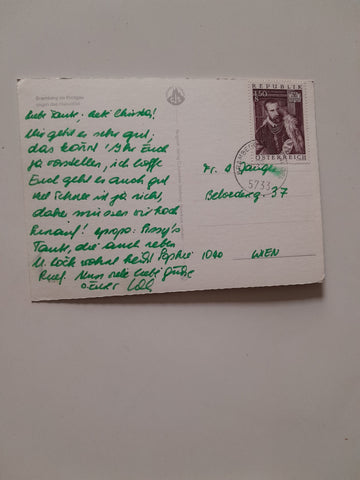 Bramberg im Pinzgau
Liebe Tante, liebe Christa!
Mir geht es sehr gut,
das könnt Ihr Euch
ja vorstellen, ich hoffe
Euch geht es auch gut
viel Schnee ist ja nicht,
daher müssen wir hoch
hinauf! apropo:
Tante, die auch neben
U. Koch wohnt heißt Sophie
Ruef. Nun viele liebe Grüße
Euer
REPUBLIK
1.50
ÖSTERREICH
BRAMBERG
5733
Fr.
Belvedereg. 37
1040 WIEN